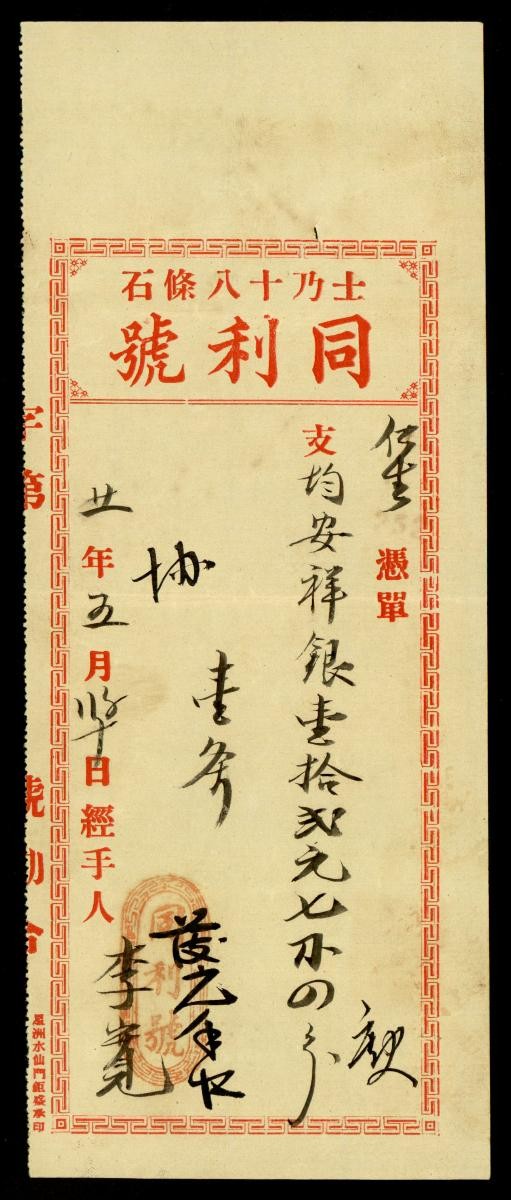 士乃十八條石
同利號
憑單
支均安祥銀壹拾弍元七 四分
壹
協
利號
廿年五月 日經手人李寬
字第 號勘合
星洲水仙門鉅盛承印